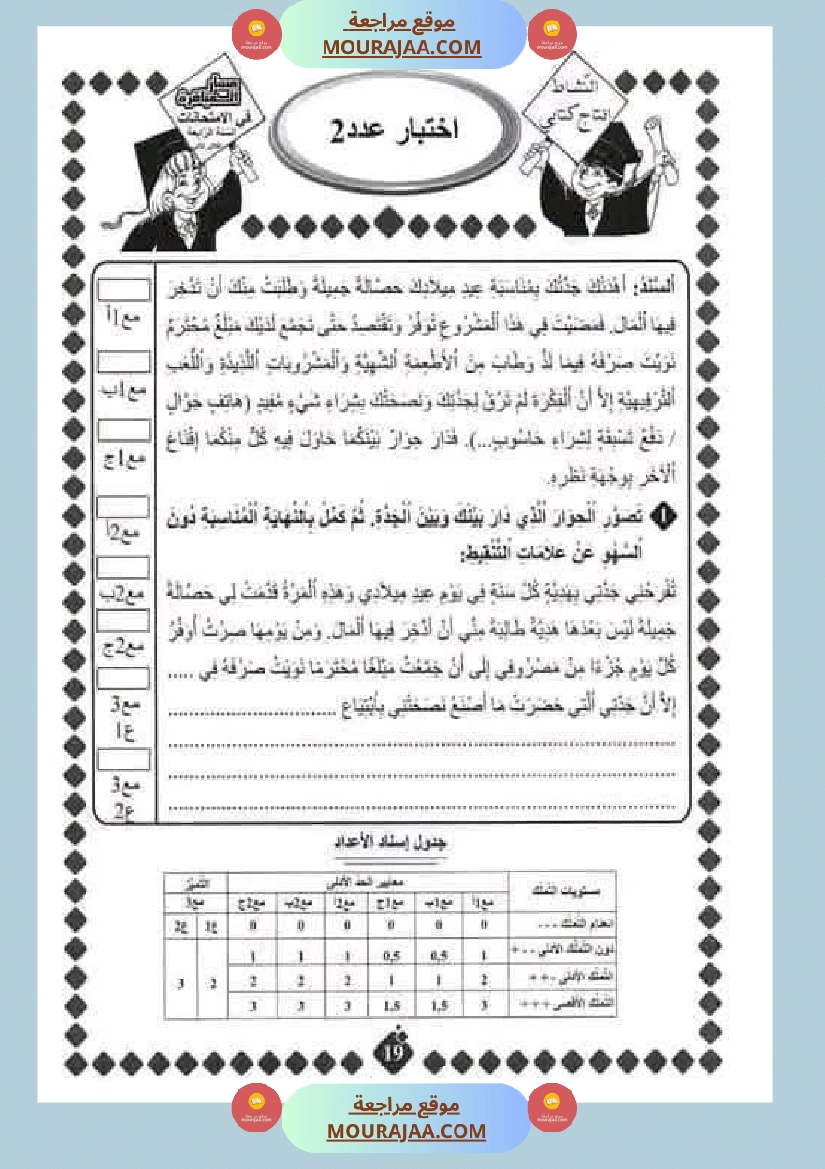 موقع مراجعة
MOURAJAA.COM
في الامتحانات
السنة الرابعة
النشاط
إنتاج كتابي
اختبار عدد2
اَلسَّنَدُ: أَهْدَتْكَ جَدَّتُكَ بِمُنَاسَبَةِ عِيدِ مِيلَادِكَ حَصَّالَةً جَمِيلَةً وَطَلَبَتْ مِنْكَ أَنْ تَدَّخِرَ
فِيهَا اَلْمَالَ. فَمَضَيْتَ فِي هَذَا اَلْمَشْرُوعِ تُوَفِّرُ وَتَقْتَصِدُ حَتَّى تَجَمَّعَ لَدَيْكَ مَبْلَغٌ مُحْتَرَمٌ
نَوَيْتَ صَرْفَهُ فِيمَا لَذَّ وَطَابَ مِنَ اَلْأَطْعِمَةِ اَلشَّهِيَّةِ وَاَلْمَشْرُوبَاتِ اَللَّذِيذَةِ وَاَللُّعَبِ
اَلتَّرْفِيهِيَّةِ إِلَّا أَنَّ اَلْفِكْرَةَ لَمْ تَرُقْ لِجَدَّتِكَ وَنَصَحَتْكَ بِشِرَاءِ شَيْءٍ مُفِيدٍ (هَاتِفٍ جَوَّالٍ
/ دَفْعُ تَسْبِقَةٍ لِشِرَاءِ حَاسُوبٍ...). فَدَارَ حِوَارٌ بَيْنَكُمَا حَاوَلَ فِيهِ كُلٌّ مِنْكُمَا إِقْنَاعَ
اَلْآخَرِ بِوِجْهَةِ نَظَرِهِ.
1 تَصَوَّرِ اَلْحِوَارَ اَلَّذِي دَارَ بَيْنَكَ وَبَيْنَ اَلْجَدَّةِ. ثُمَّ كَمِّلْ بِاَلنِّهَايَةِ اَلْمُنَاسِبَةِ دُونَ
اَلسَّهْوِ عَنْ عَلَامَاتِ اَلتَّنْقِيطِ:
تُفْرِحُنِي جَدَّتِي بِهَدِيَّةٍ كُلَّ سَنَةٍ فِي يَوْمِ عِيدِ مِيلَادِي وَهَذِهِ اَلْمَرَّةَ قَدَّمَتْ لِي حَصَّالَةً
جَمِيلَةً لَيْسَ بَعْدَهَا هَدِيَّةٌ طَالِبَةً مِنِّي أَنْ أَدَّخِرَ فِيهَا اَلْمَالَ. وَمِنْ يَوْمِهَا صِرْتُ أُوَفِّرُ
كُلَّ يَوْمٍ جُزْءًا مِنْ مَصْرُوفِي إِلَى أَنْ جَمَّعْتُ مَبْلَغًا مُحْتَرَمًا نَوَيْتُ صَرْفَهُ فِي .....
إِلَّا أَنَّ جَدَّتِي اَلَّتِي حَضَرَتْ مَا أَصْنَعُ نَصَحَتْنِي بِاِبْتِيَاعِ ..............................
مع1أ
مع1ب
مع1ج
مع2أ
مع2ب
مع2ج
مع3
ع1
مع3
ع2
جدول إسناد الأعداد
مستويات التملك معايير الحد الأدنى التميّز
مع1أ مع1ب مع1ج مع2أ مع2ب مع2ج مع3
انعدام التملك - - - 0 0 0 0 0 0 ع1 ع2
دون التملك الأدنى - - + 1 0,5 0,5 1 1 1
التملك الأدنى - + + 2 1 1 2 2 2 2 3
التملك الأقصى + + + 3 1,5 1,5 3 3 3
19
موقع مراجعة
MOURAJAA.COM